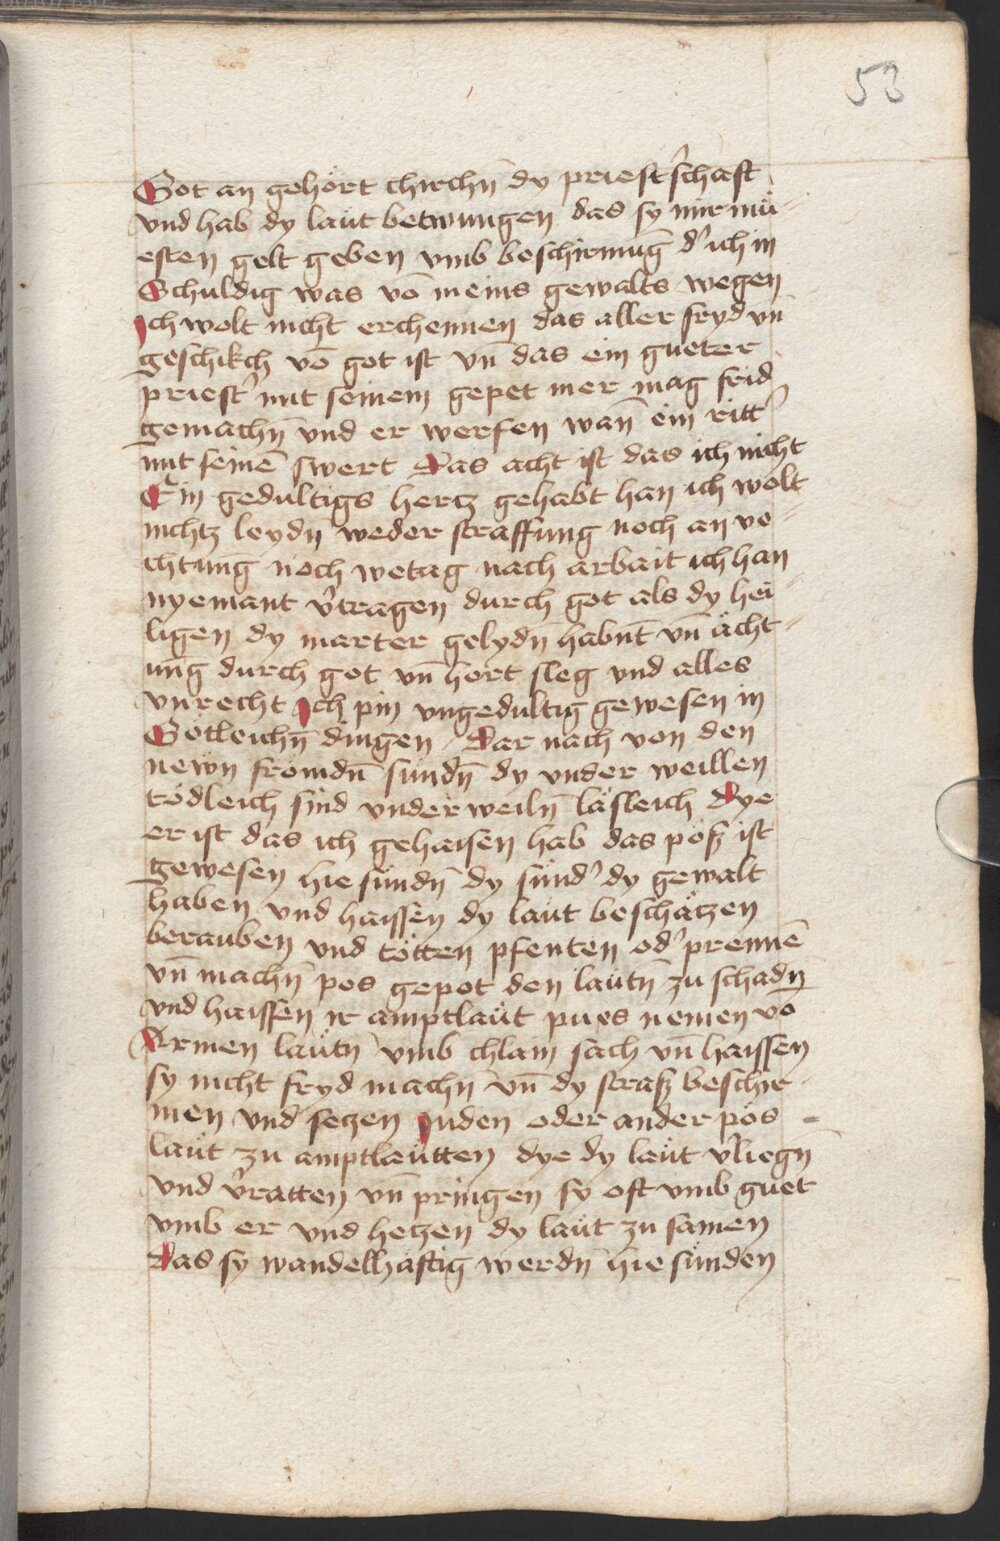 53
Got an gehört chirchn̄ dy priestʼschaft
vnd hab dy läut betwungen das sy mir mü-
esten gelt geben vmb beschirmūg dʼ ich in
Schuldig was vō meins gewalts wegen
Ich wolt nicht erchennen das aller fryd vn̄
geschikch vō got ist vn̄ das ein gueter
priestʼ mit seinem gepet mer mag frid
gemachn̄ vnd er werfen wan̄ ein rittʼ
mit seinē swert Das acht ist das ich nicht
Ein gedultigs hertz gehabt han ich wolt
nichtz leydn̄ weder straffung noch an vo-
chtung noch wetag nach arbait ich han
nyemant vʼtragen durch got als dy hei-
ligen dy marter gelydn̄ habnt vn̄ ächt-
ung durch got vn̄ hort sleg vnd alles
vnrecht Ich pin vngedultig gewesen in
Götleichn̄ dingen Dar nach von den
newn frömdn̄ sündn̄ dy vnder weillen
tödleich sind vnder weiln̄ läsleich Dye
er ist das ich gehaisen hab das pösz ist
gewesen hie sündn̄ dy sündʼ dy gewalt
haben vnd haissen dy läut beschätzen
berauben vnd tötten pfenten odʼ prennē
vn̄ machn̄ pos gepot den läutn̄ zu schadn̄
vnd haissen ir amptläut pues nemen vō
Armen läutn̄ vmb chlain sach vn̄ haissen
sy nicht fryd machn̄ vn̄ dy strasz beschir-
men vnd setzen Juden oder ander pös
läut zu amptläutten dye dy läut vʼliegn̄
vnd vʼratten vn̄ pringen sy oft vmb guet
vmb er vnd hetzen dy läut zu samen
Das sy wandelhäftig werdn̄ hie sünden